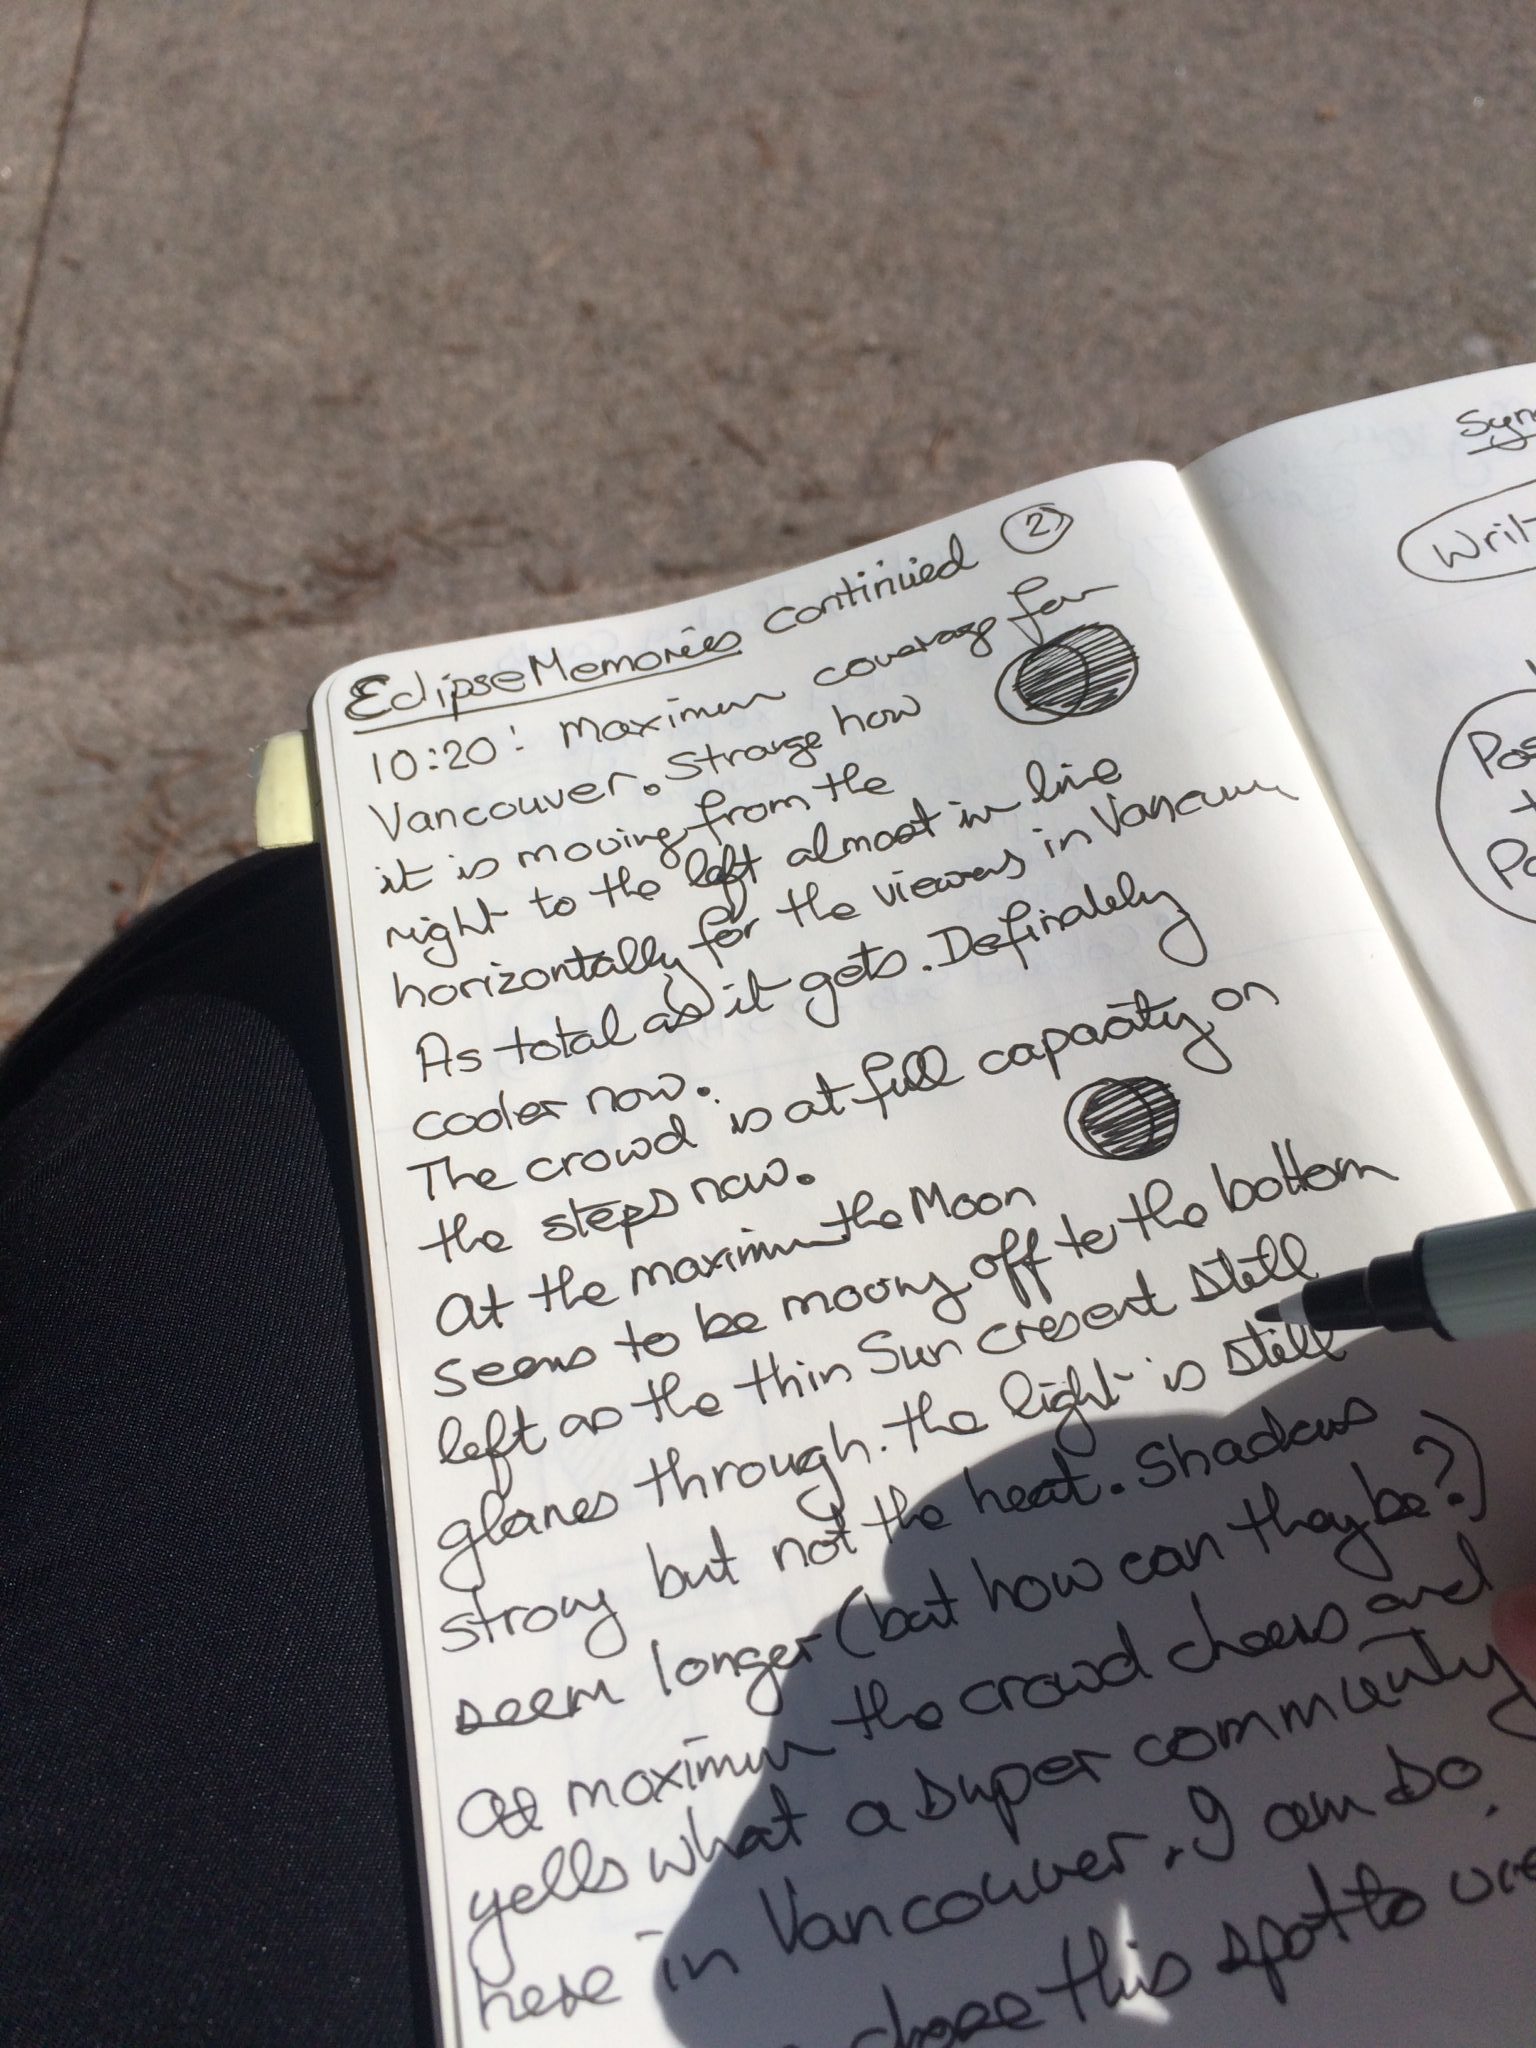 Eclipse Memories continued 2
10:20: Maximum coverage for
Vancouver. Strange how
it is moving from the
right to the left almost in line
horizontally for the viewers in Vancouver
As total as it gets. Definately
cooler now.
The crowd is at full capacity on
the steps now.
At the maximum the Moon
seems to be moving off to the bottom
left as the thin Sun cresent still
glares through. the light is still
strong but not the heat. Shadows
seem longer (but how can they be?)
At maximum the crowd cheers and
yells what a super community
here in Vancouver. I am so
chose this spot to
Syn
Writ
Pos
+
Po